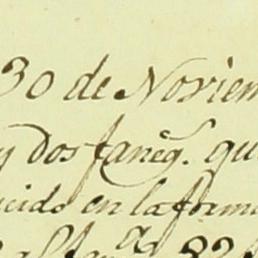 30 de Noviem
y dos faneg.s qu
ucido en la forma